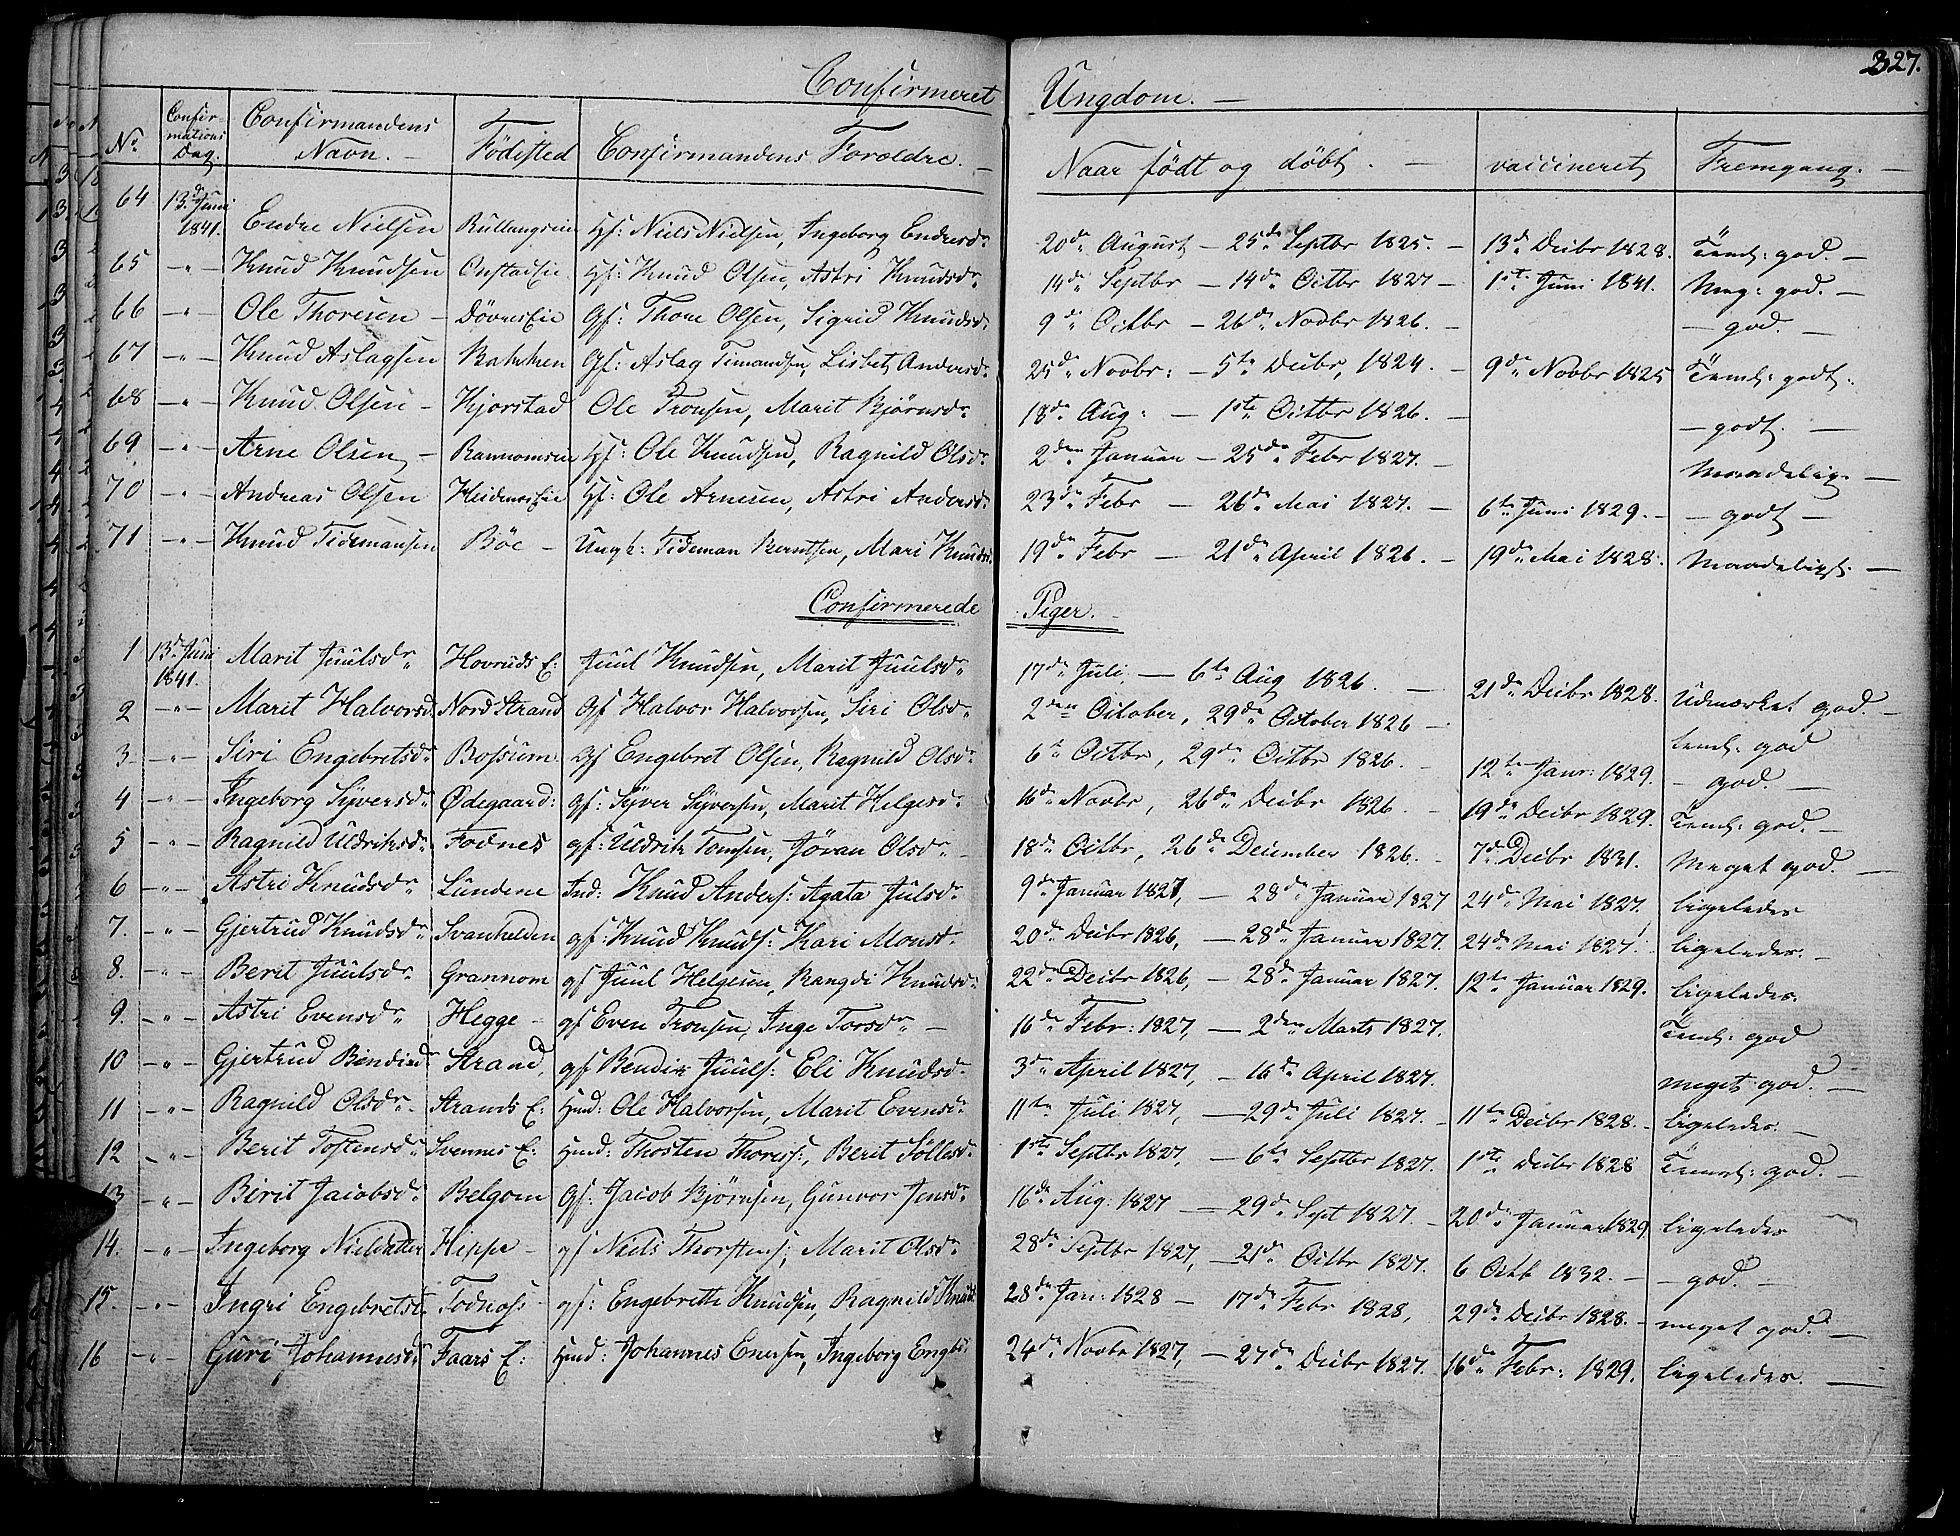 327.
Confirmeret Ungdom. —
No. Confirmations Dag. Confirmandens Navn. — Födested Confirmandens Forældre. — Naar födt og döbt. — vaccineret Fremgang. —
64 13d Juni 1841. Endre Nielsen Hf: Niels Nielsen, Ingeborg Endresdr 20de August — 25de Septbr 1825. — 13de Decbr 1828. Teml: god. —
65 -"- Knud Knudsen Hf: Knud Olsen, Astri Knudsdr 14de Septbr — 14de Octbr 1827 — 1ste Juni 1841. Meg: god. —
66 -"- Ole Thoresen — Dövres Eie Gf: Thore Olsen, Sigrid Knudsdr 9de Octbr — 26de Novbr 1826. — — god. —
67 -"- Knud Aslagsen Bakken Gf: Aslag Timandsen, Lisbet Andersdr 25de Novbr: — 5te Decbr, 1824. — 9de Novbr 1825 Teml: godt.
68 -"- Knud Olsen — Kjörstad Ole Tronsen, Marit Björnsdr 18de Aug: — 1ste Octbr 1826. — — godt. —
69 -"- Arne Olsen — Hf: Ole Knudsen, Ragnild Olsdr 2den Januar — 25de Febr 1827. — Maadelig. —
70 -"- Andreas Olsen Hf: Ole Arnesen, Astri Andersdr 23de Febr — 26de Mai 1827. — 6te Juni 1829. — — godt —
71 -"- Knud Tidemansen Böe — Ungk: Tideman Berntsen, Mari Knudsdr. 19de Febr — 21de April 1826. — 19de Mai 1828. Maadeligt. —
Confirmerede Piger. —
1 13de Juni 1841. Marit Juulsdr Hovruds E: Juul Knudsen, Marit Juulsdr 17de Juli — 6te Aug 1826. — 21de Decbr 1828. Udmærket god. —
2 -"- Marit Halvorsd. Nord Strand Gf Halvor Halvorsen, Siri Olsdr 2den October, 29de October 1826 — teml: god
3 -"- Siri Engebretsdr Bossum gf Engebret Olsen, Ragnild Olsdr 6te Octbr, 29de Octbr 1826. — 12te Janr: 1829. — god. —
4 -"- Ingeborg Syversdr Ødegaard: gf: Syver Syversen, Marit Helgesdr 16de Novbr, 26de Decbr 1826. — 19de Decbr 1829. Teml: god. —
5 -"- Ragnild Uldriksdr Fodnes gf: Uldrik Tomsen, Jöran Olsdr — 18de Octbr, 26de December 1826. — 7de Decbr 1831. Meget god. —
6 -"- Astri Knudsdr Lundene Ind: Knud Anders: Agata Julsdr 9de Januar 1827, — 28de Januar 1827 24de Mai 1827. ligeledes
7. -"- Gjertrud Knudsdr Svanhelden gf: Knud Knuds: Kari Monsdr. 20de Decbr 1826, — 28de Januar 1827. 24de Mai 1827. ligeledes. —
8. -"- Berit Juulsdr Grannom gf Juul Helgesen, Rangdi Knudsdr 22de Decbr 1826, — 28de Januar 1827. 12te Januar 1829. ligeledes.
9. -"- Astri Evensdr Hegge — gf Even Tronsen, Inge Torsdr — 16de Febr: 1827, — 2den Marts 1827. Teml: god
10 -"- Gjertrud Bendixd Strand, gf Bendix Juuls: Eli Knudsdr 3de April 1827, — 16de April 1827. meget god. —
11 -"- Ragnild Olsdr. Strands E: Huud: Ole Halvorsen, Marit Evensdr 11te Juli 1827, — 29de Juli 1827. — 11te Decbr 1828. — ligeledes. —
12 -"- Berit Tostensdr Svennes E: Huud: Thosten Thores:, Berit Söllesdr 1ste Septbr 1827, — 6te Septbr 1827. 1ste Decbr 1828 Teml: god. —
13 -"- Birit Jacobsdr Belgom Gf: Jacob Björnsen, Gunvor Jensdr 16de Aug: 1827 — 29de Sept 1827. — 20de Januar 1829 ligeledes
14. -"- Ingeborg Nielsdatter Hippe — gf Niels Thorstens:, Marit Olsdr 28de Septbr 1827, — 21de Octbr 1827. 6 Octb 1832. — — god. —
15. -"- Ingri Engebretsd. gf: Engebrett Knudsen, Ragnild Knudsd 28de Jan: 1828 — 17de Febr 1828, 29de Decbr 1828. — meget god. —
16 -"- Guri Johannesdr Faars E: Huud: Johannes Enersen, Ingeborg Engbr: 24de Novbr 1827, — 27de Decbr 1827. 16de Febr: 1829. ligeledes. —